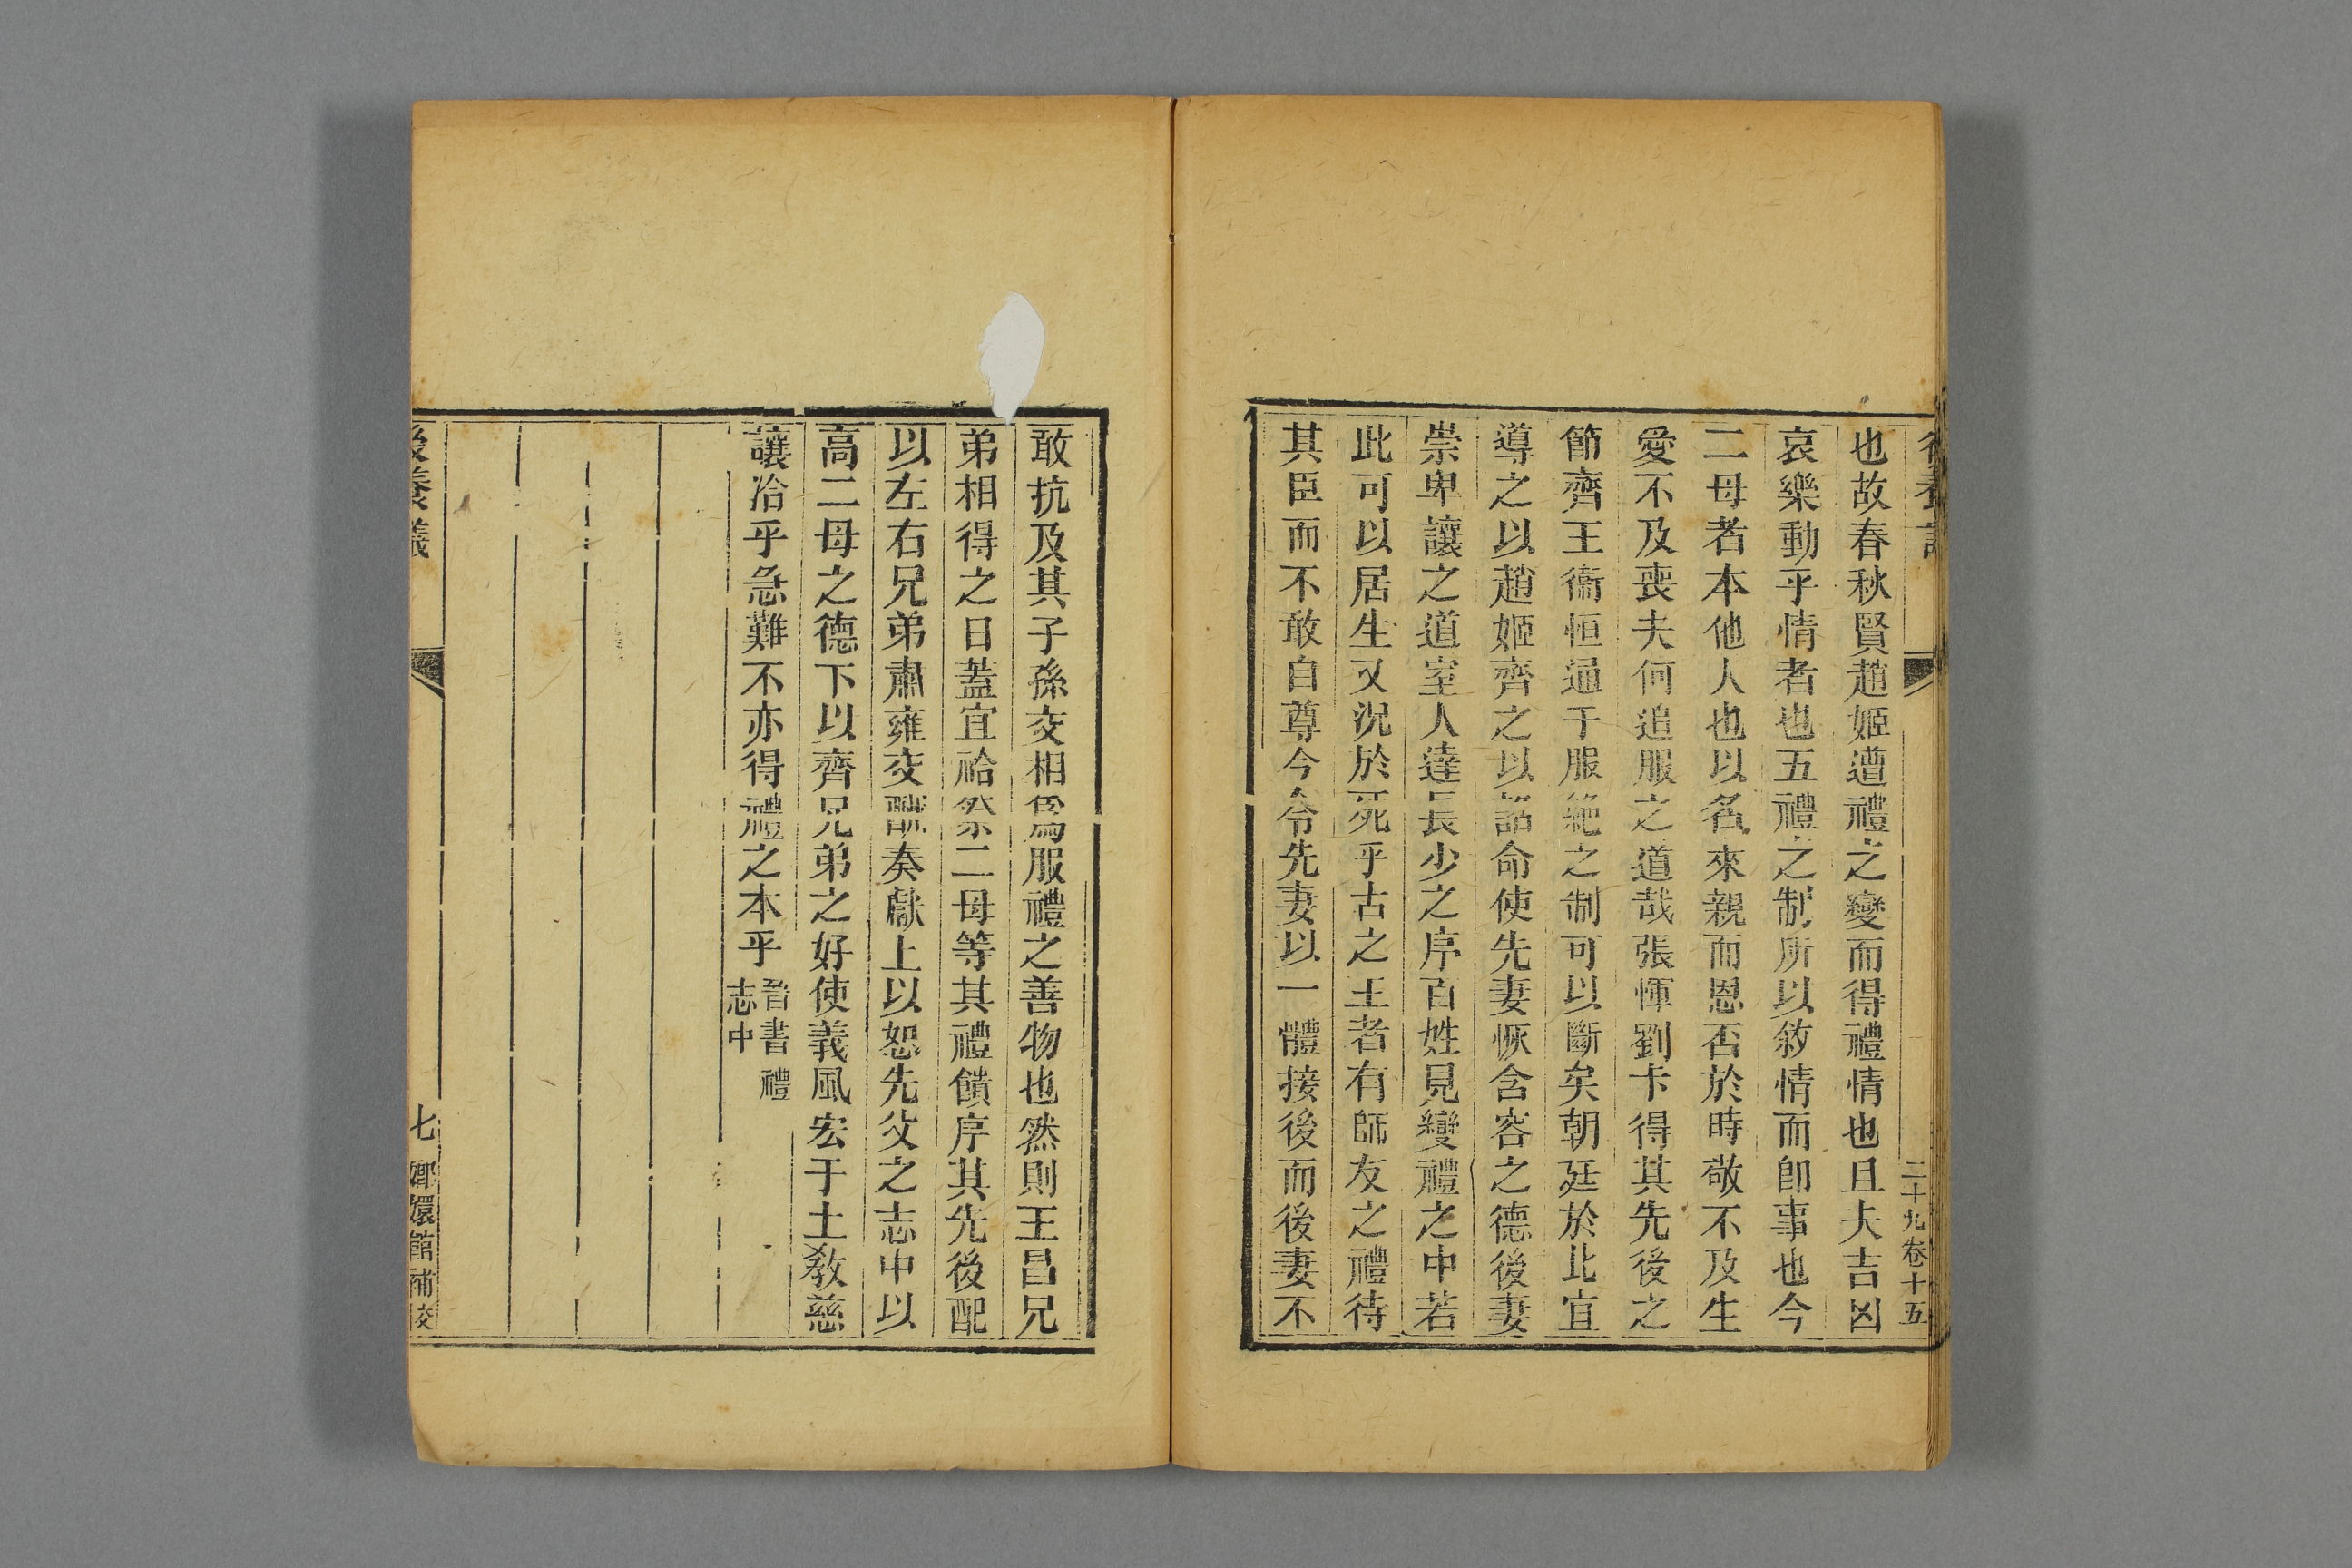 二十九卷十五
也故春秋賢趙姬遭禮之變而得禮情也且夫吉凶
哀樂動乎情者也五禮之制所以敘情而卽事也今
二母者本他人也以名來親而恩否於時敬不及生
愛不及喪夫何追服之道哉張惲劉卞得其先後之
節齊王衞恒通于服絶之制可以斷矣朝廷於此宜
導之以趙姬齊之以詔命使先妻恢含容之德後妻
崇卑讓之道室人達長少之序百姓見變禮之中若
此可以居生又況於死乎古之王者有師友之禮待
其臣而不敢自尊今令先妻以一體接後而後妻不
敢抗及其子孫交相爲服禮之善物也然則王昌兄
弟相得之日蓋宜祫祭二母等其禮饋序其先後配
以左右兄弟肅雍交酬奏獻上以恕先父之志中以
高二母之德下以齊兄弟之好使義風宏于土敎慈
讓洽乎急難不亦得禮之本乎
晉書禮
志中
後養議
七 嫏嬛館補校